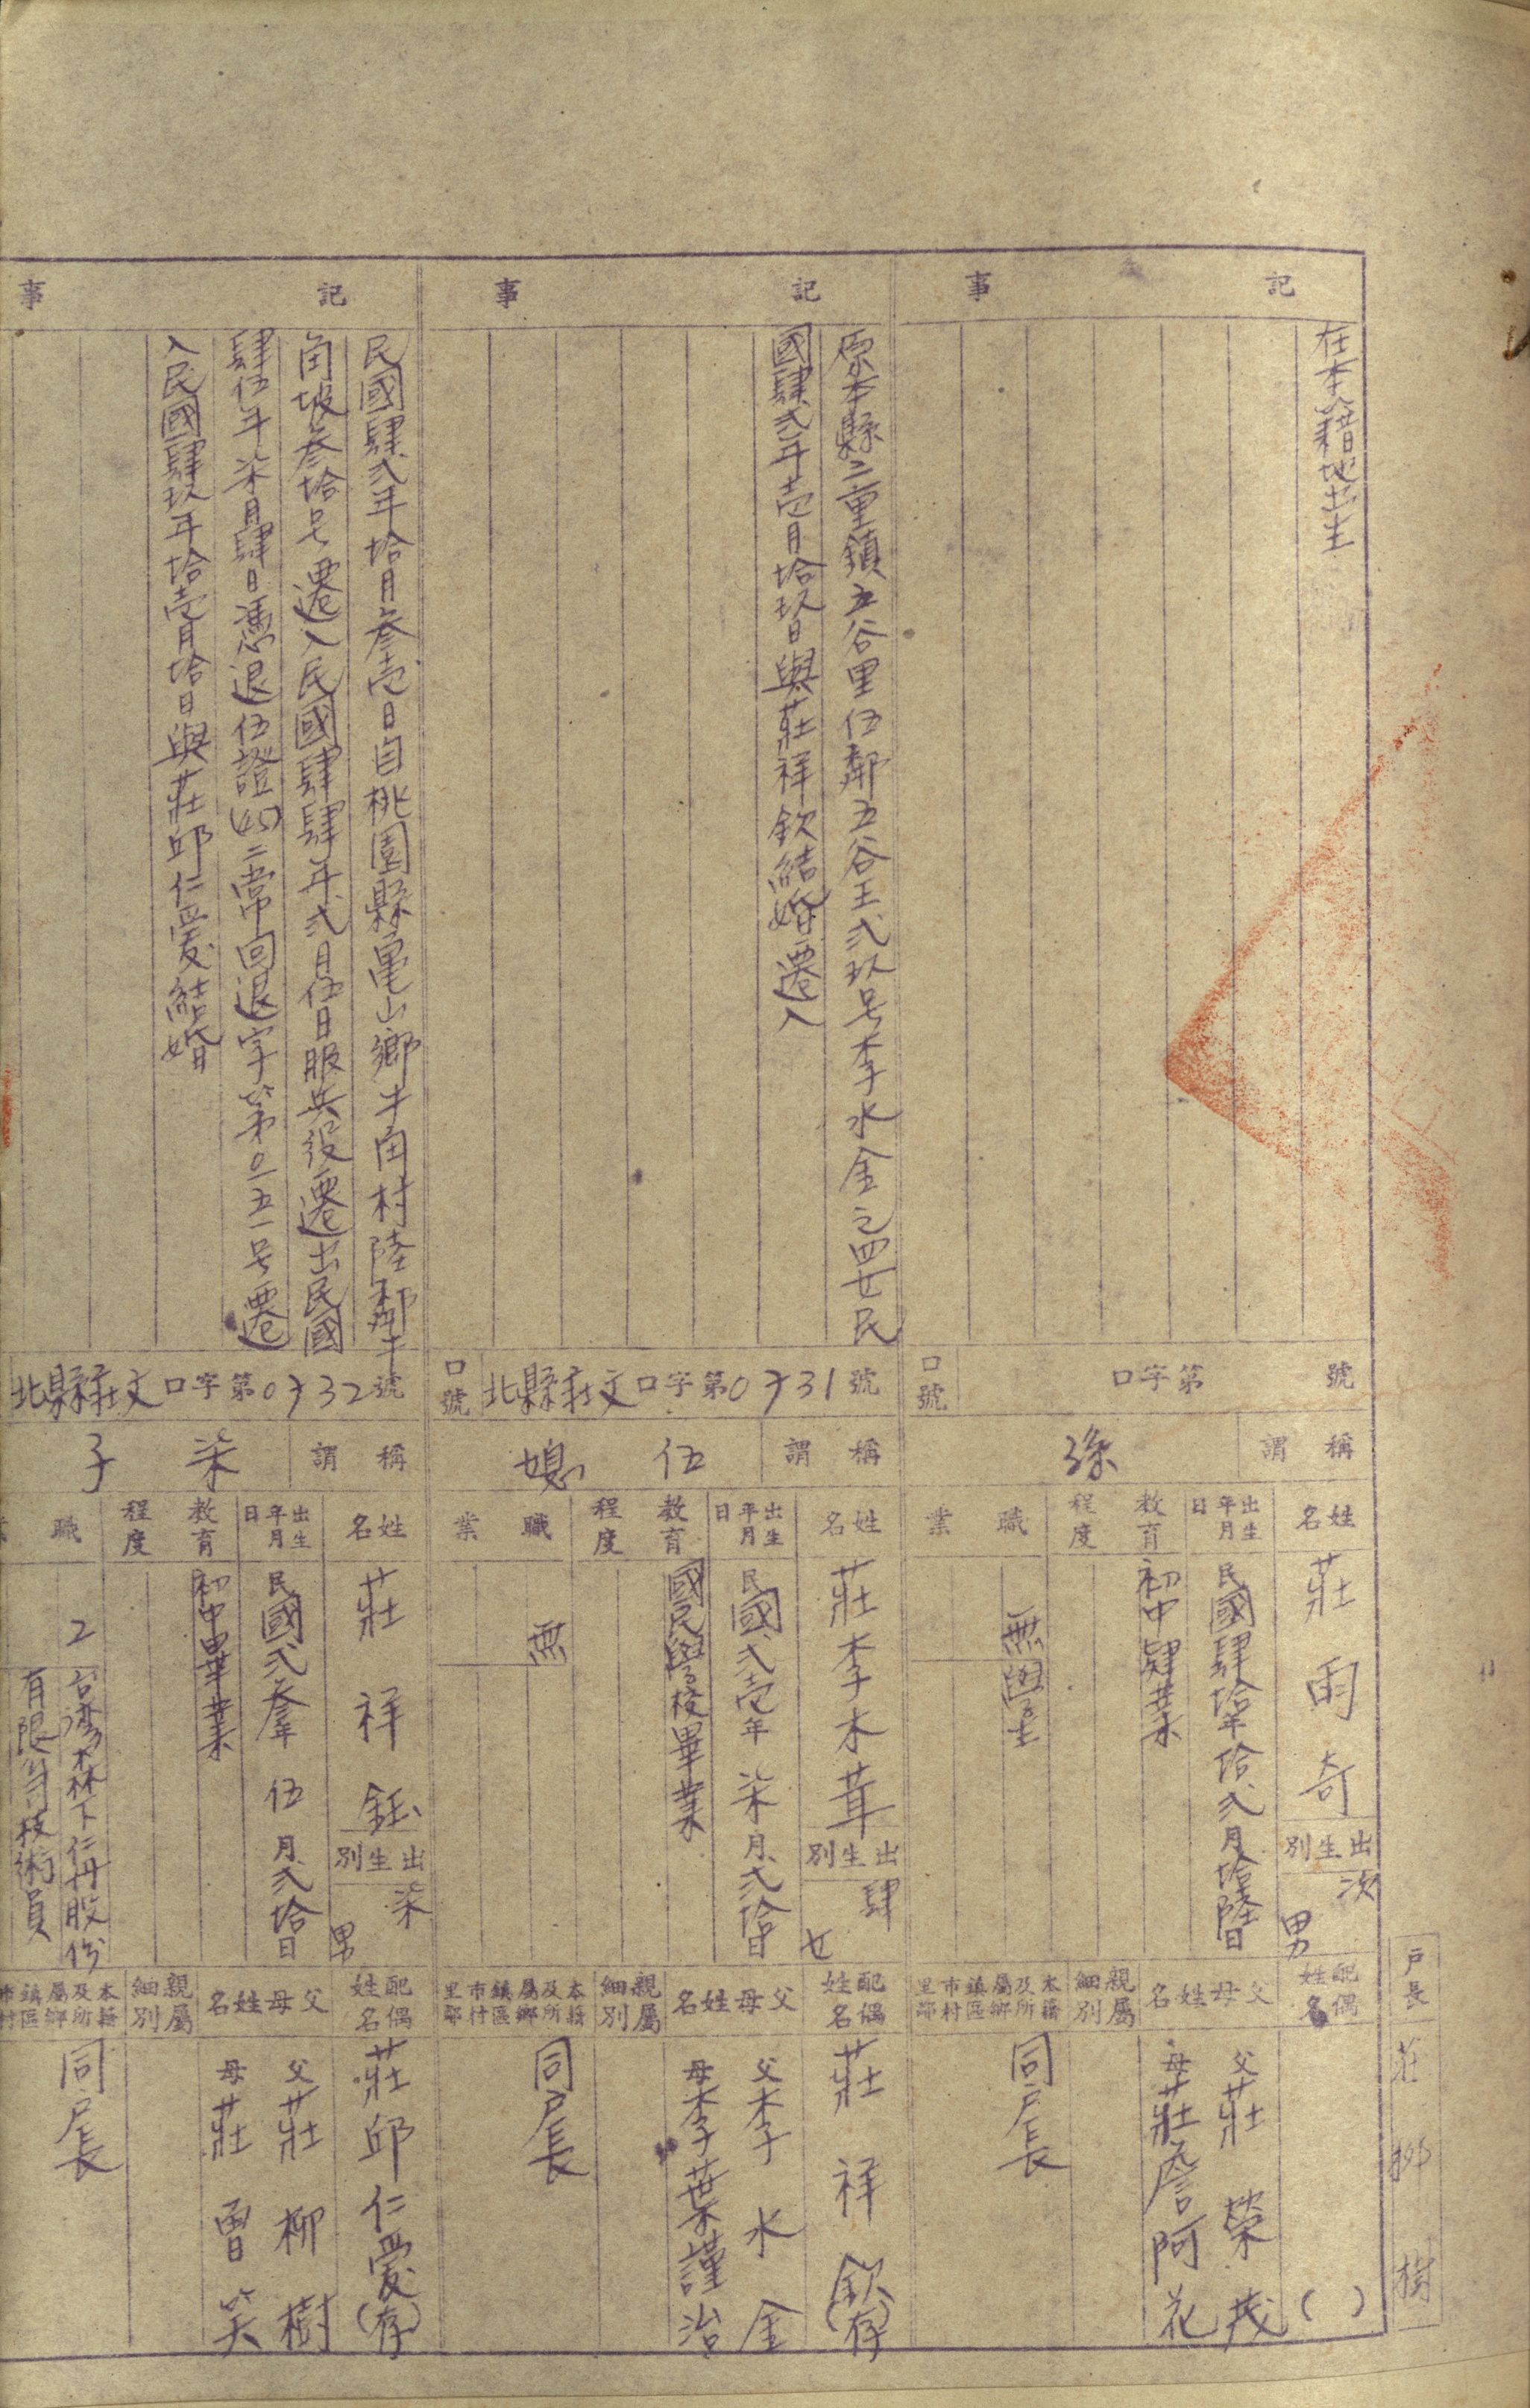 戶長 莊柳樹
記事
在本籍地出生
口號
口字第 號
稱謂
孫
姓名
莊雨奇
出生別
次男
出生年月日
民國肆拾年拾弍月拾陸日
教育程度
初中肄業
職業
無
學生
配偶姓名
( )
父母姓名
父莊榮茂
母莊詹阿花
親屬細別
本籍及所屬鄉鎮區市村里鄰
同戶長
記事
原本縣二重鎮五谷里伍鄰五谷王弍玖号李水金之四女民
國肆弍年壱月拾玖日與莊祥欽結婚遷入
口號
北縣莊文口字第0731號
稱謂
伍媳
姓名
莊李木茸
出生別
肆女
出生年月日
民國弍壱年柒月弍拾日
教育程度
國民學校畢業
職業
無
配偶姓名
莊祥欽(存)
父母姓名
父李水金
母李葉謹治
親屬細別
本籍及所屬鄉鎮區市村里鄰
同戶長
記事
民國肆弍年拾月參壱日自桃園縣龜山鄉牛角村陸鄰牛
角坡參拾号遷入民國肆肆年弍月伍日服兵役遷出民國
肆伍年柒月肆日憑退伍證(45)二常回退字第0二五一号遷
入民國肆玖年拾壱月拾日與莊邱仁愛結婚
北縣莊文口字第0732號
稱謂
柒子
姓名
莊祥鈺
出生別
柒男
出生年月日
民國弍參年伍月弍拾日
教育程度
初中畢業
職
2
台灣森下仁丹股份
有限公司技術員
配偶姓名
莊邱仁愛(存)
父母姓名
父莊柳樹
母莊曾笑
親屬細別
本籍及所屬鄉鎮區市村
同戶長